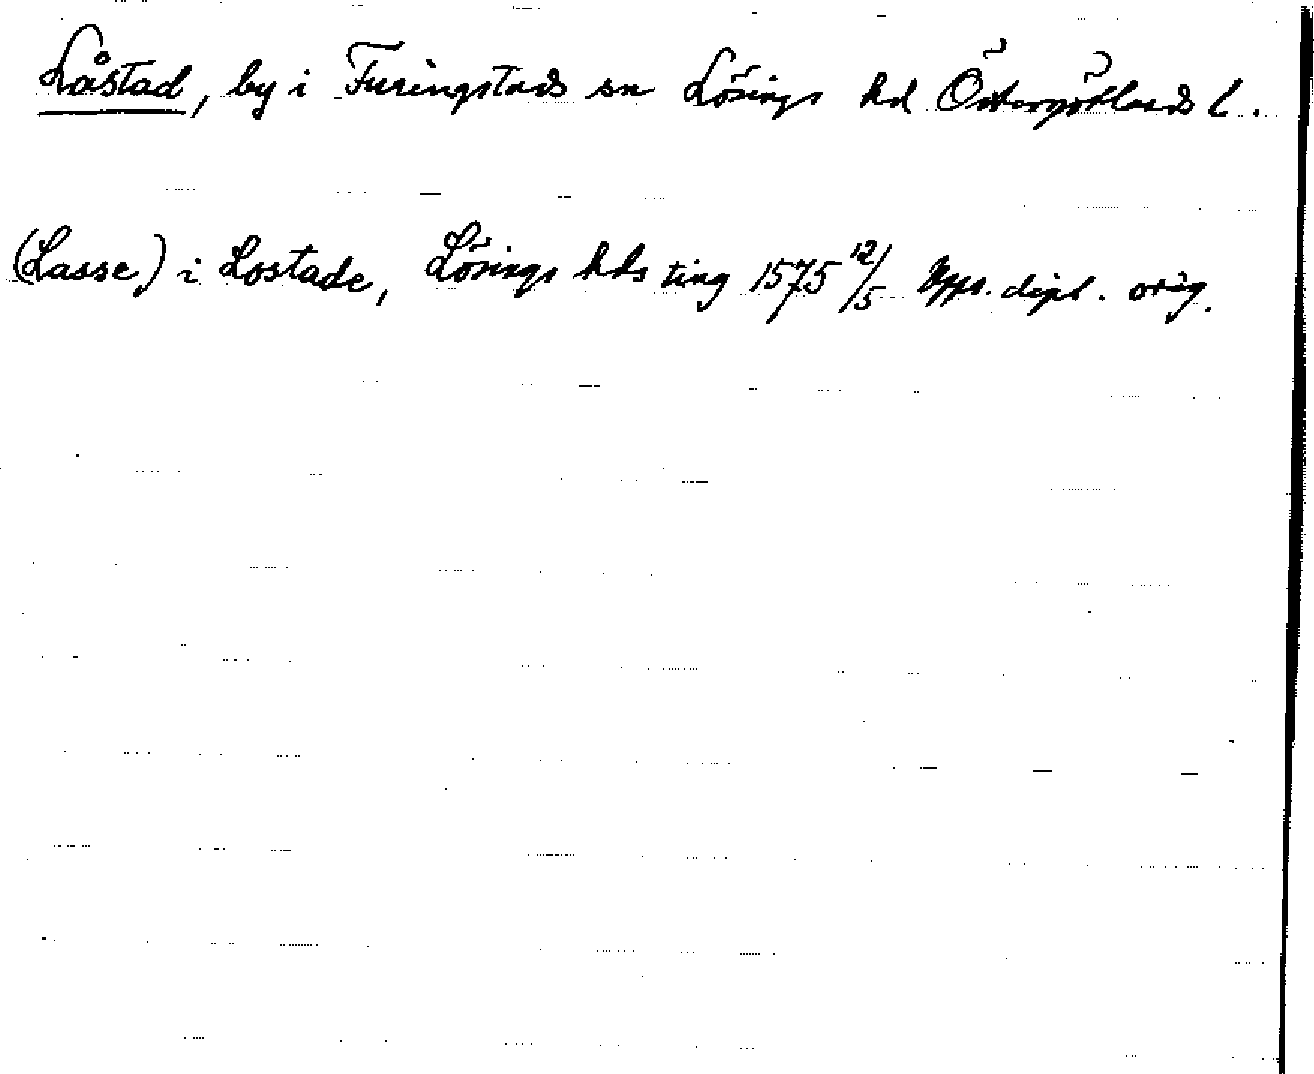 Låstad, by i Furingstads sn Lösings hd Östergötlands l.
(Lasse) i Lostade, Lösings hds ting 1575 12/5 Upps. dipl. orig.